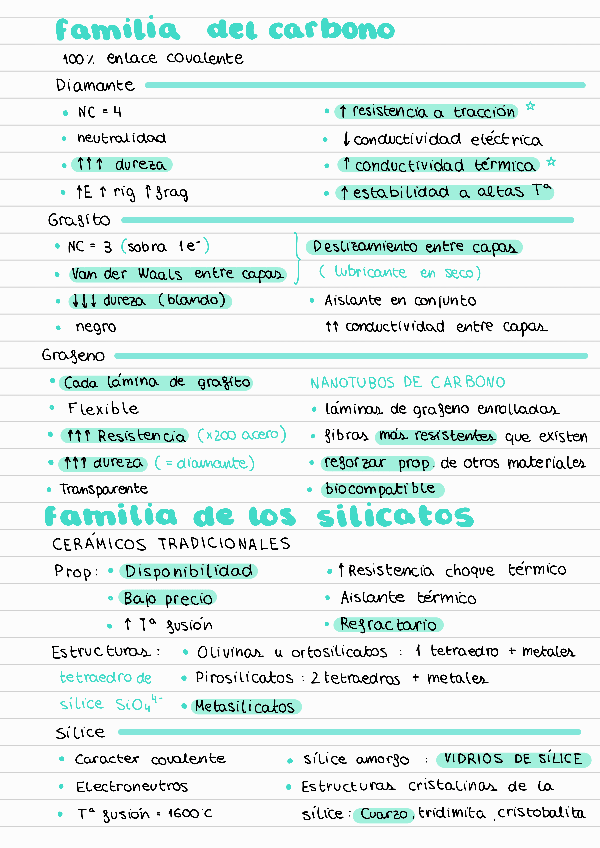 Familia del carbono
100% enlace covalente
Diamante
• NC = 4
• neutralidad
• ↑↑↑ dureza
• ↑E ↑ rig ↑ frag
• ↑ resistencia a tracción ☆
• ↓ conductividad eléctrica
• ↑ conductividad térmica ☆
• ↑ estabilidad a altas Tª
Grafito
• NC = 3 (sobra 1e⁻)
• Van der Waals entre capas
Deslizamiento entre capas
(lubricante en seco)
• ↓↓↓ dureza (blando)
• negro
• Aislante en conjunto
↑↑ conductividad entre capas
Grafeno
• Cada lámina de grafito
• Flexible
• ↑↑↑ Resistencia (x200 acero)
• ↑↑↑ dureza (= diamante)
• Transparente
NANOTUBOS DE CARBONO
• láminas de grafeno enrolladas
• fibras más resistentes que existen
• reforzar prop. de otros materiales
• biocompatible
Familia de los silicatos
CERÁMICOS TRADICIONALES
Prop: • Disponibilidad
• Bajo precio
• ↑ Tª fusión
• ↑ Resistencia choque térmico
• Aislante térmico
• Refractario
Estructuras: • Olivinas u ortosilicatos : 1 tetraedro + metales
tetraedro de • Pirosilicatos : 2 tetraedros + metales
sílice SiO₄⁴⁻ • Metasilicatos
Sílice
• Caracter covalente
• Electroneutros
• Tª fusión = 1600°C
• sílice amorfo : VIDRIOS DE SÍLICE
• Estructuras cristalinas de la
sílice: Cuarzo, tridimita, cristobalita